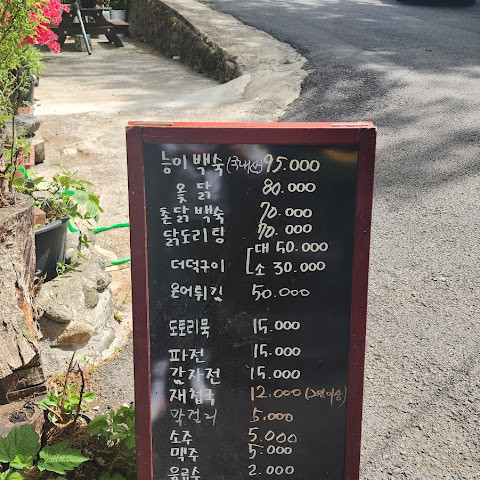 능이백숙(국내산) 95.000
옻닭 80.000
촌닭백숙 70.000
닭도리탕 70.000
더덕구이 대 50.000
소 30.000
은어튀김 50.000
도토리묵 15.000
파전 15.000
감자전 15.000
재첩국 12.000 (2인 이상)
막걸리 5.000
소주 5.000
맥주 5.000
음료수 2.000